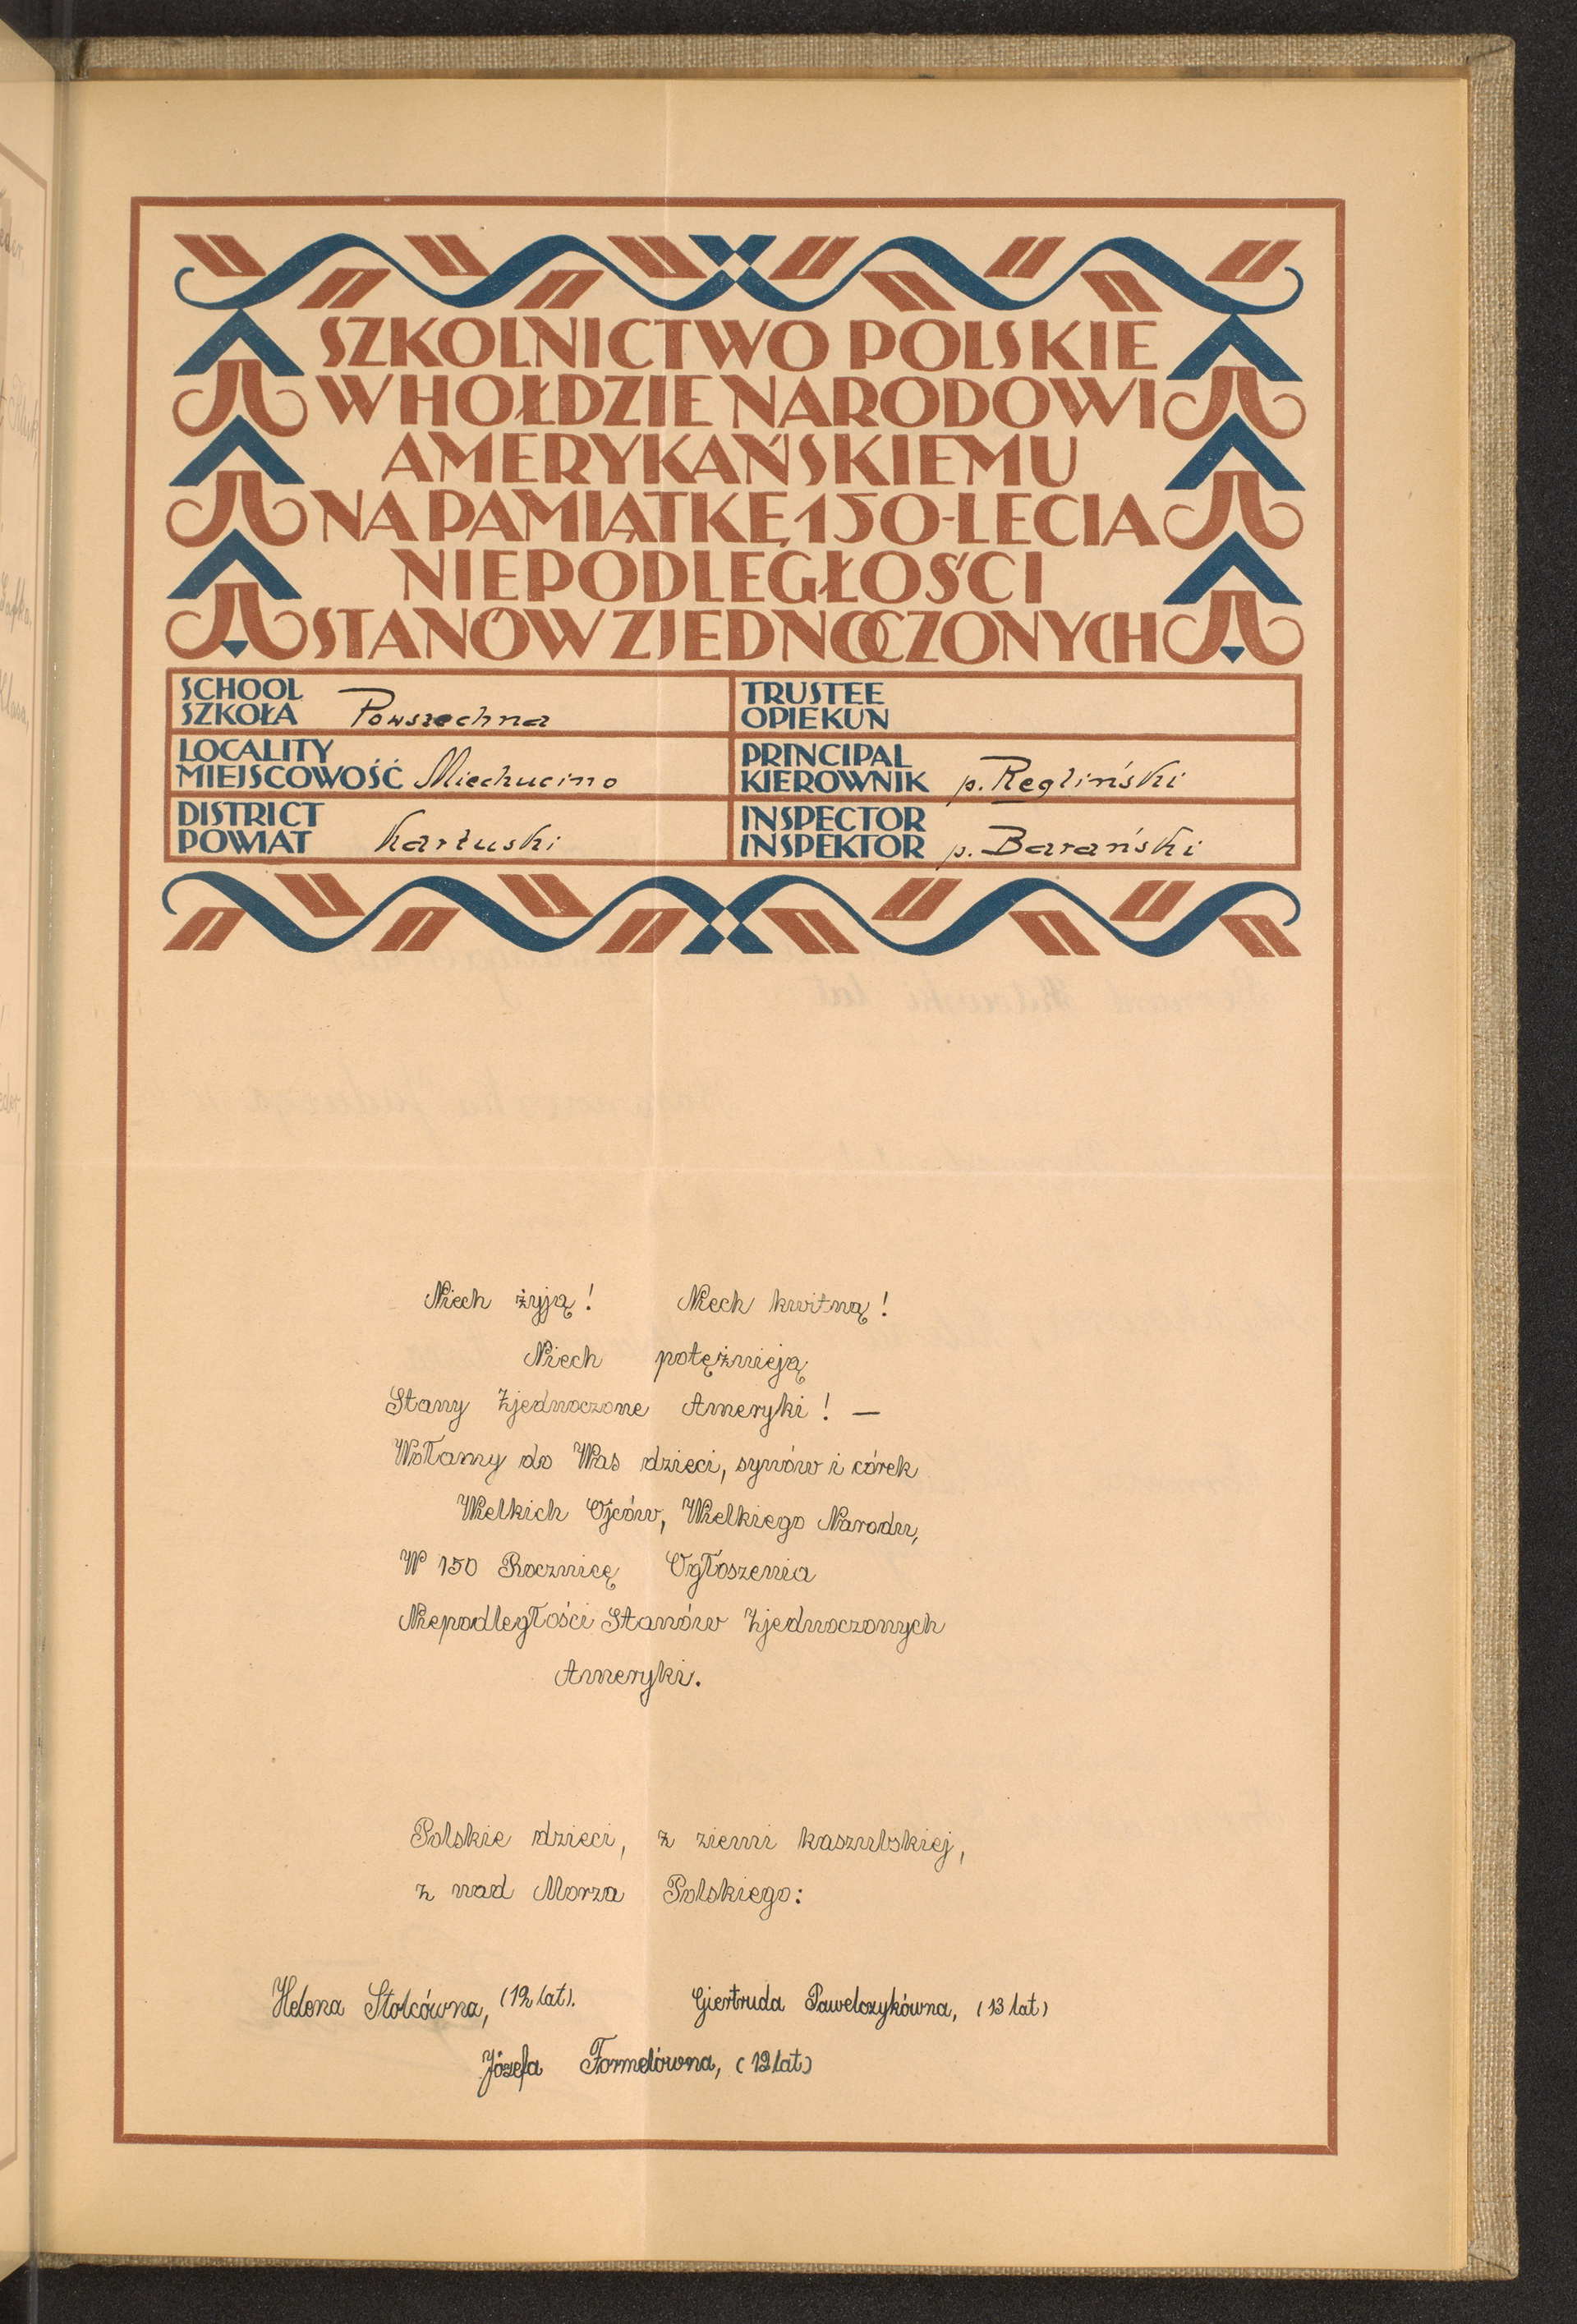 SZKOLNICTWO POLSKIE
W HOŁDZIE NARODOWI
AMERYKAŃSKIEMU
NA PAMIĄTKĘ 150-LECIA
NIEPODLEGŁOŚCI
STANÓW ZJEDNOCZONYCH
SCHOOL
SZKOŁA Powszechna
TRUSTEE
OPIEKUN
LOCALITY
MIEJSCOWOŚĆ Miechucino
PRINCIPAL
KIEROWNIK p. Regliński
DISTRICT
POWIAT Kartuski
INSPECTOR
INSPEKTOR p. Barański
Niech żyją! Niech kwitną!
Niech potężnieją
Stany Zjednoczone Ameryki! —
Wołamy do Was dzieci, synów i córek
Wielkich Ojców, Wielkiego Narodu,
W 150 Rocznicę Ogłoszenia
Niepodległości Stanów Zjednoczonych
Ameryki.
Polskie dzieci, z ziemi kaszubskiej,
z nad Morza Polskiego:
Helena Stolcówna, (12 lat). Giertruda Pawelczykówna, (13 lat)
Józefa Formelówna, (12 lat)